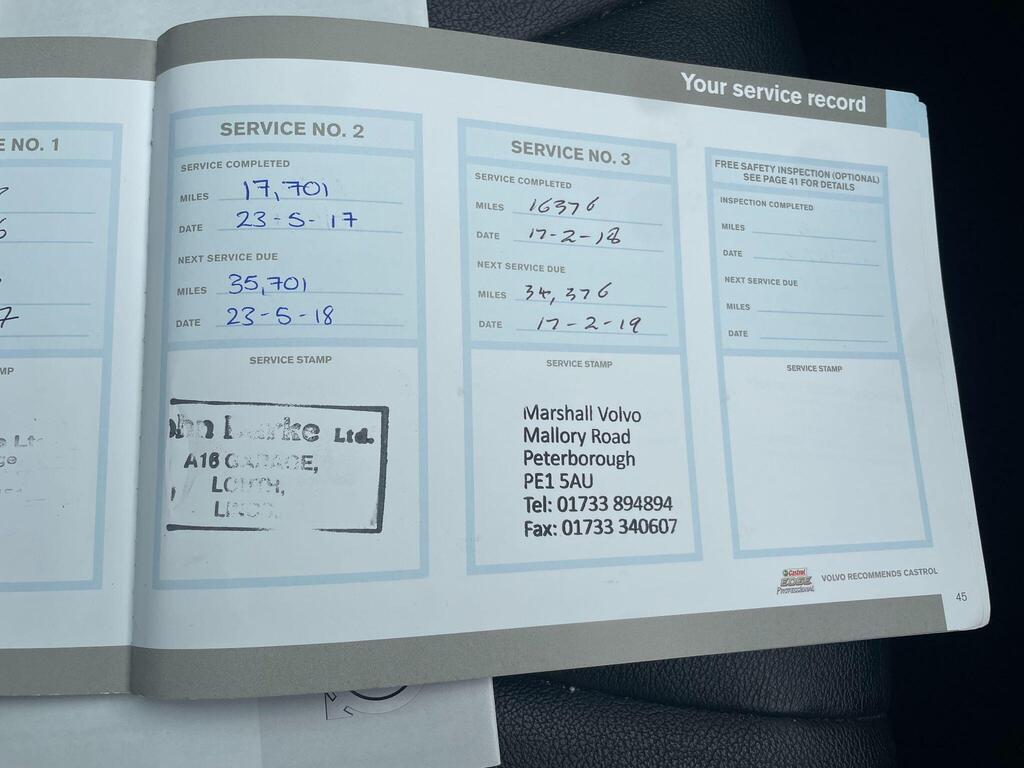 Your service record
E NO. 1
7
SERVICE NO. 2
SERVICE COMPLETED
MILES 17,701
DATE 23-5-17
NEXT SERVICE DUE
MILES 35,701
DATE 23-5-18
SERVICE STAMP
Ltd.
A16 GARAGE,
LOUTH,
SERVICE NO. 3
SERVICE COMPLETED
MILES 16376
DATE 17-2-18
NEXT SERVICE DUE
MILES 34,376
DATE 17-2-19
SERVICE STAMP
Marshall Volvo
Mallory Road
Peterborough
PE1 5AU
Tel: 01733 894894
Fax: 01733 340607
FREE SAFETY INSPECTION (OPTIONAL)
SEE PAGE 41 FOR DETAILS
INSPECTION COMPLETED
MILES
DATE
NEXT SERVICE DUE
MILES
DATE
SERVICE STAMP
Castrol
EDGE
PROFESSIONAL
VOLVO RECOMMENDS CASTROL
45